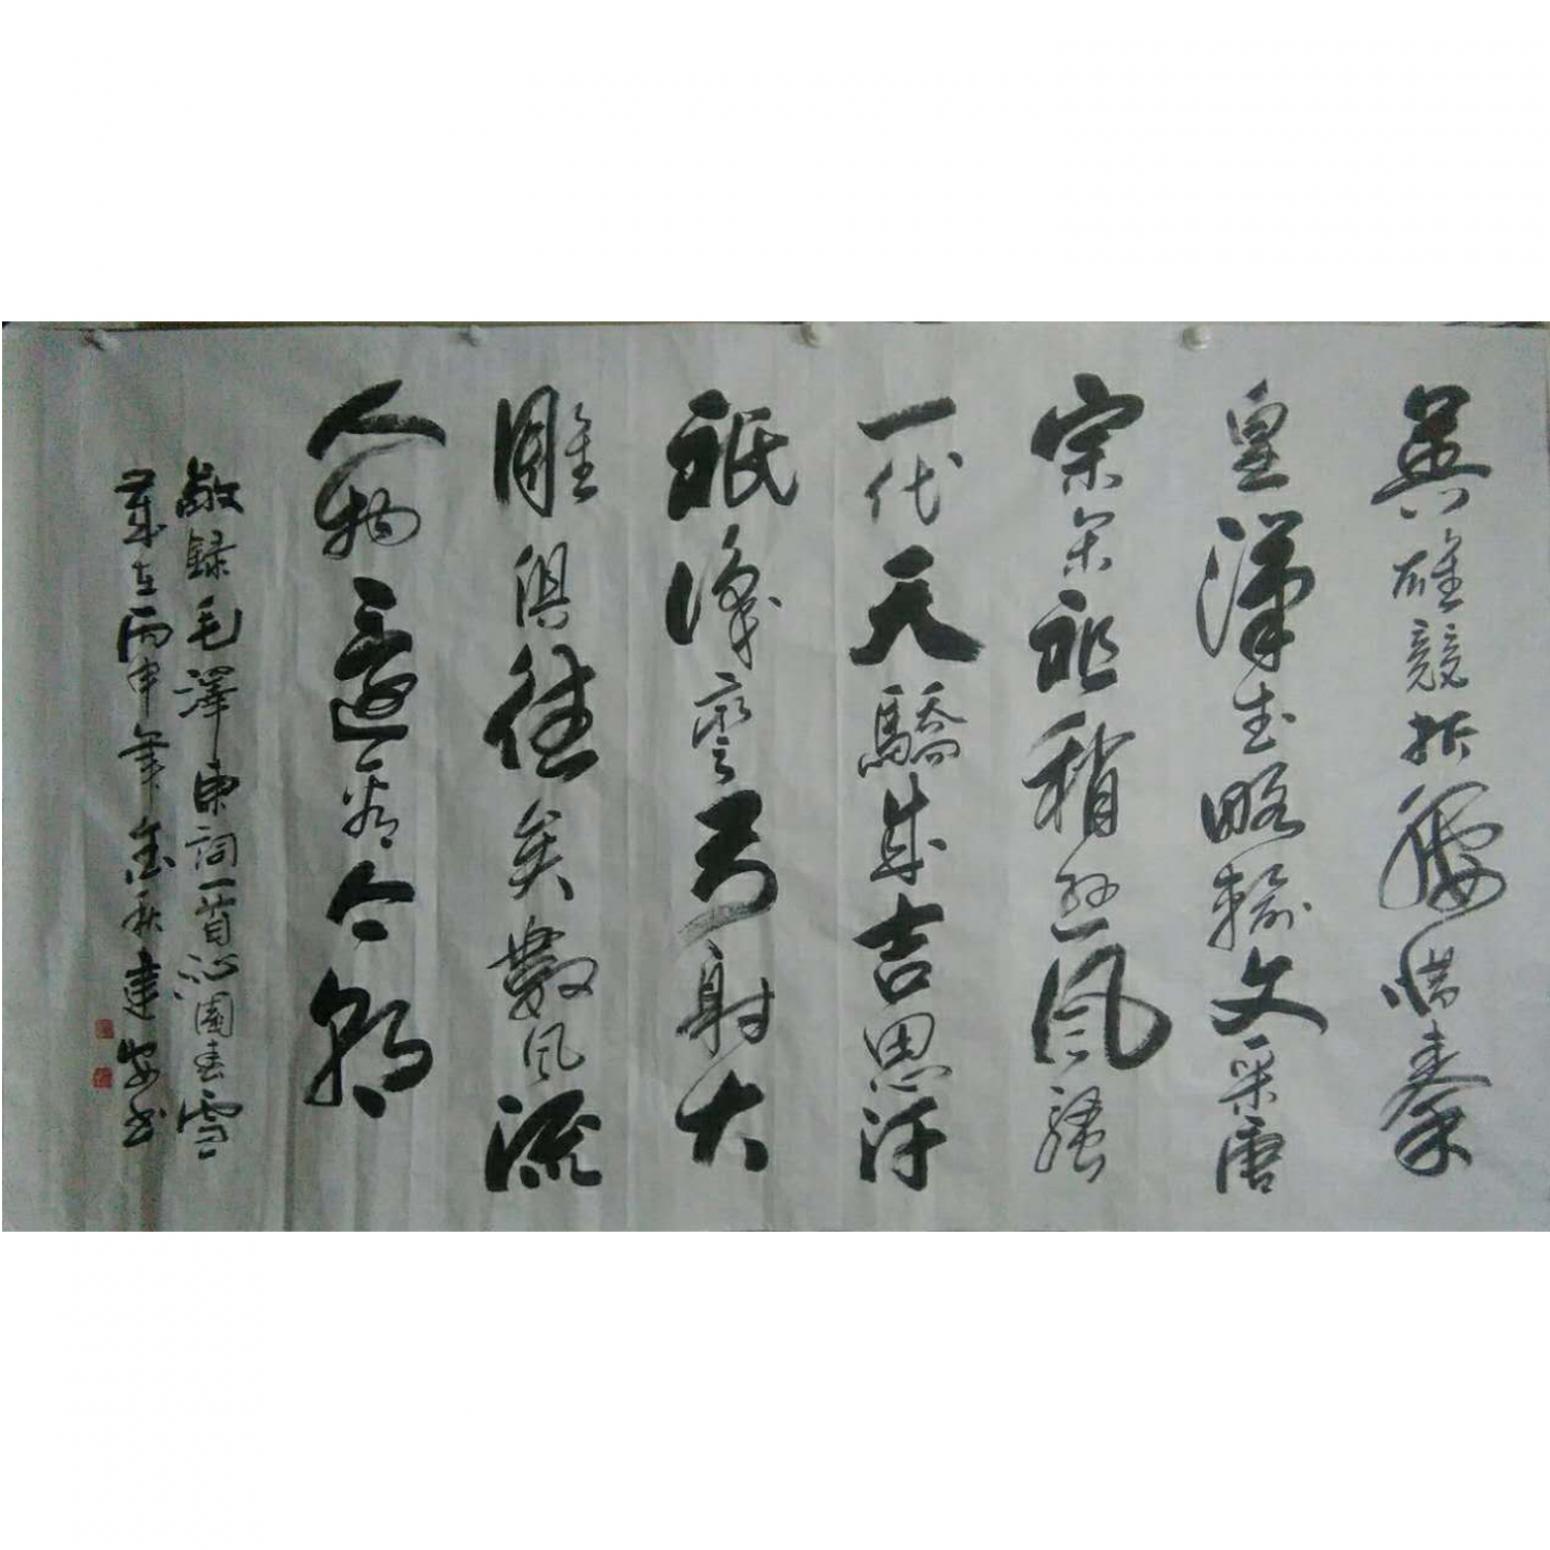 英雄競折腰惜秦
皇漢武略輸文采唐
宗宋祖稍遜風騷
一代天驕成吉思汗
祇識彎弓射大
雕俱往矣數風流
人物還看今朝
敬録毛澤東詞一首沁園春雪
歲在丙申年金秋建安书